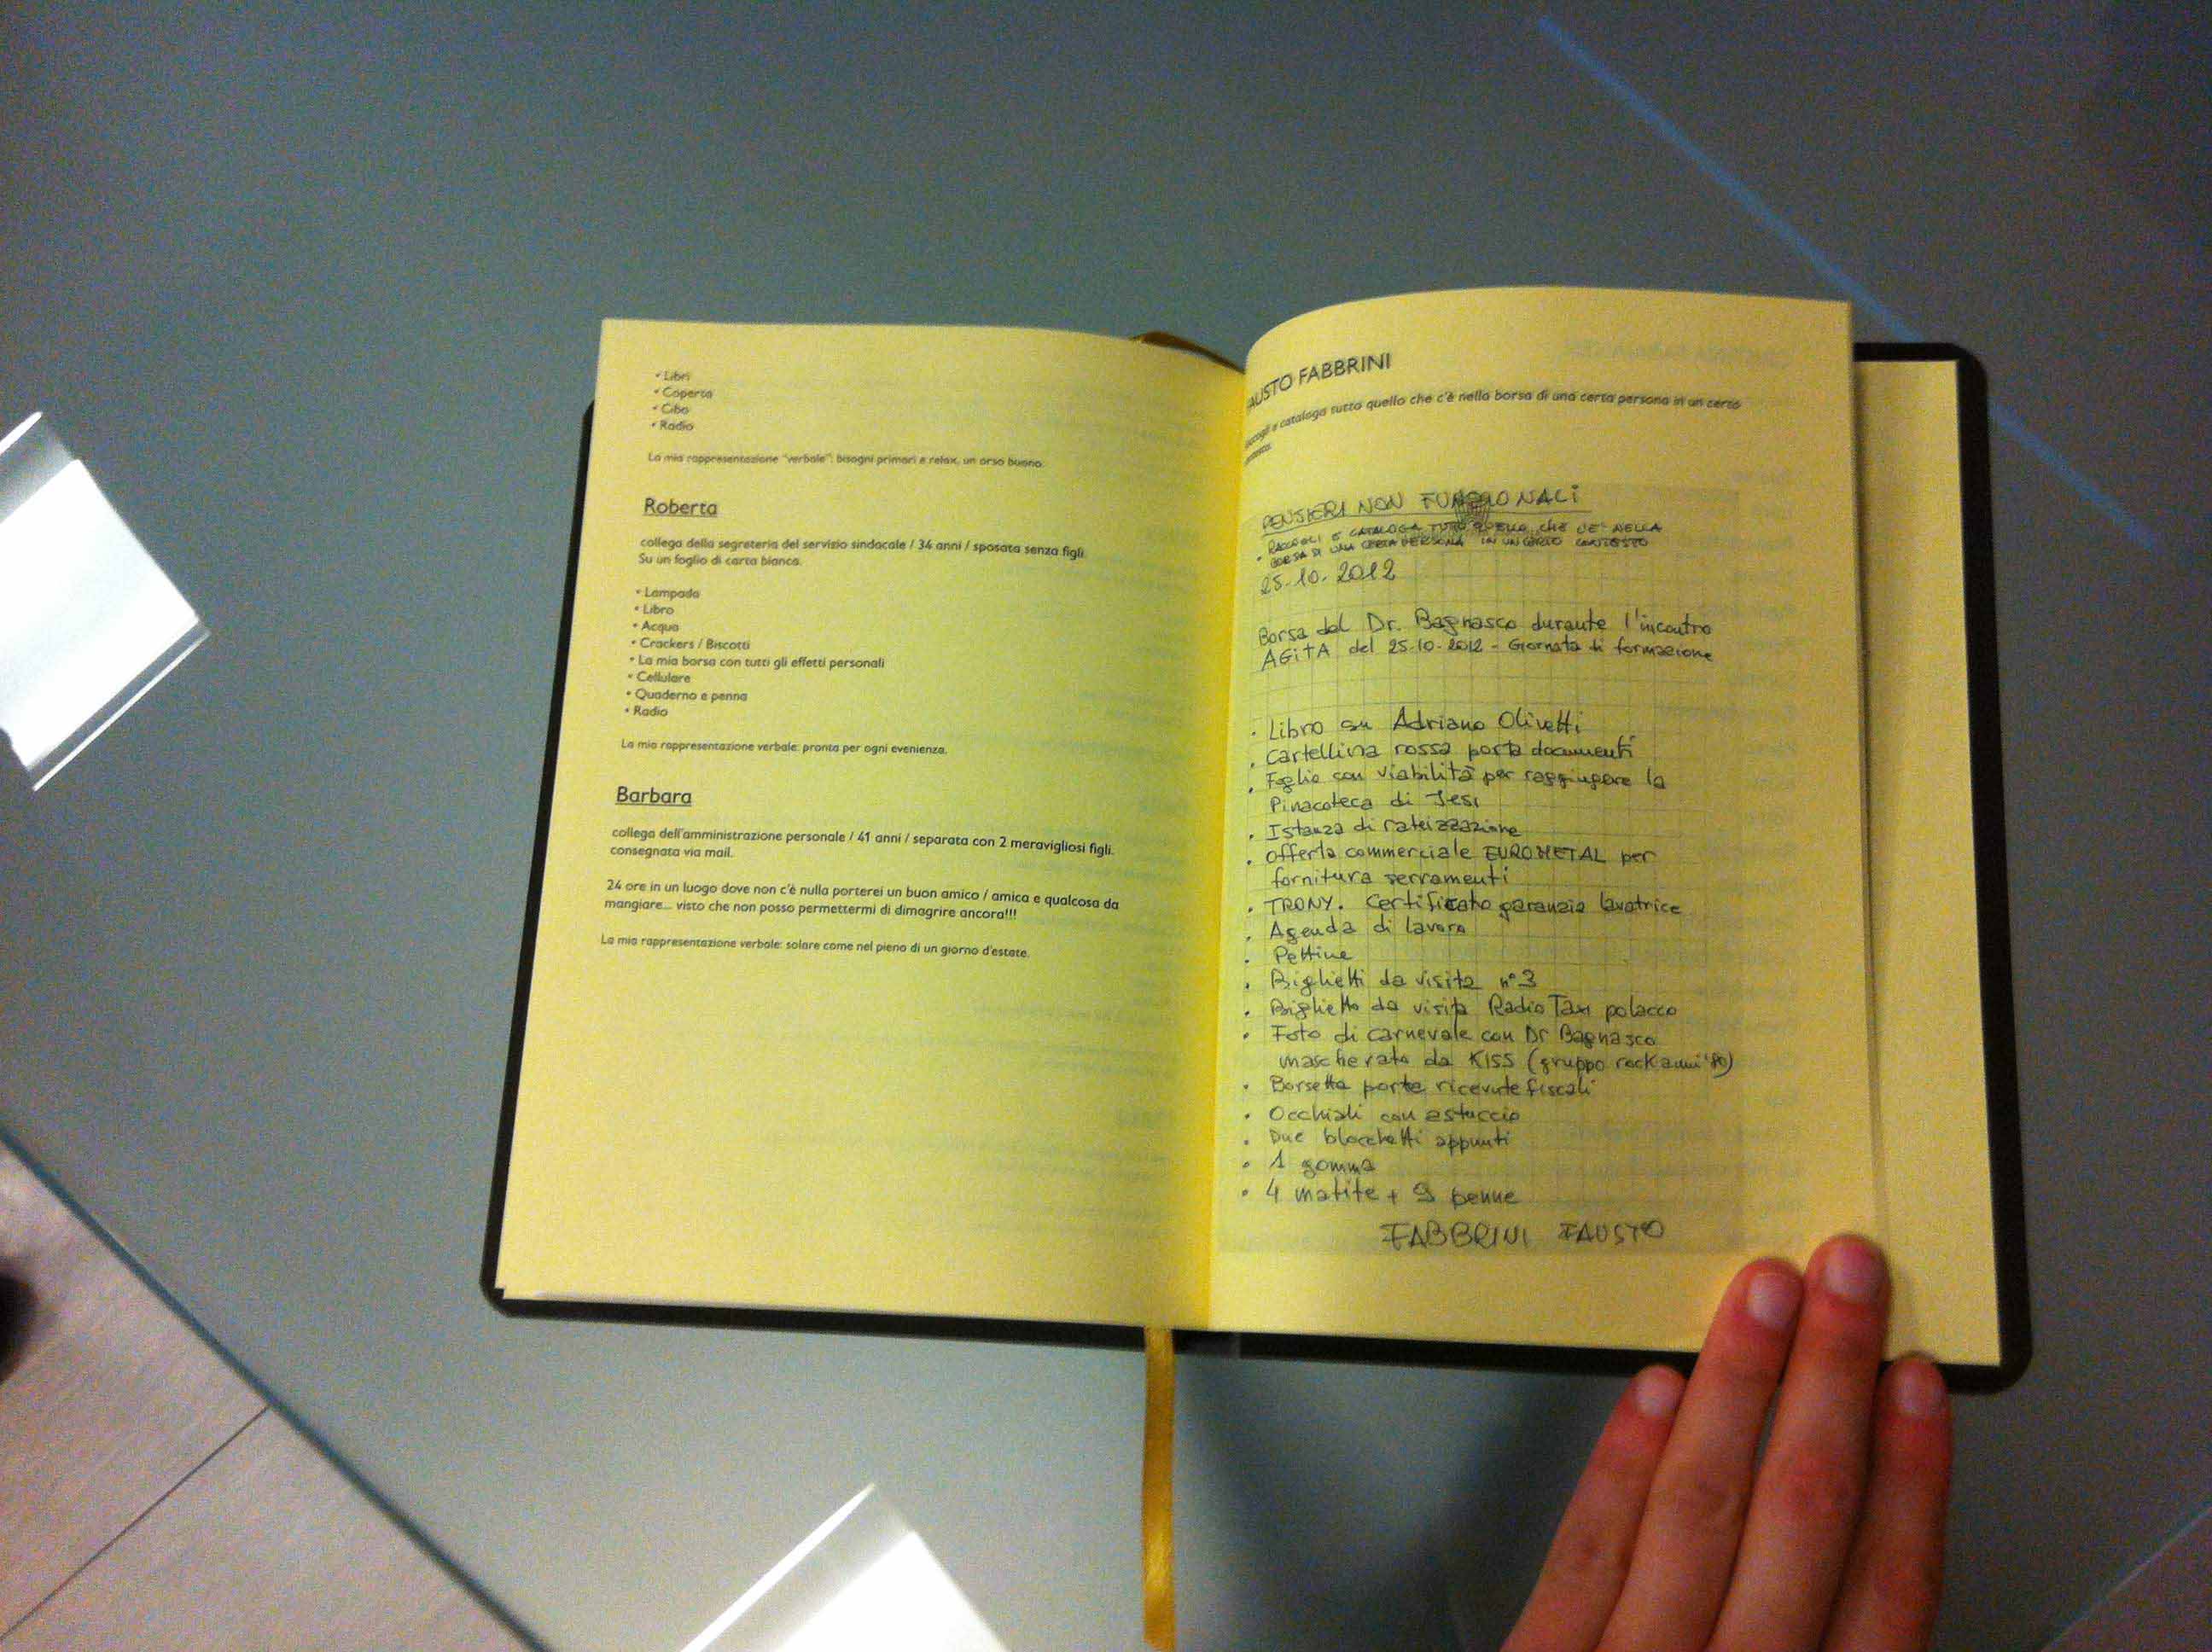 • Libri
• Coperta
• Cibo
• Radio
La mia rappresentazione "verbale": bisogni primari e relax, un orso buono.
Roberta
collega della segreteria del servizio sindacale / 34 anni / sposata senza figli.
Su un foglio di carta bianca.
• Lampada
• Libro
• Acqua
• Crackers / Biscotti
• La mia borsa con tutti gli effetti personali
• Cellulare
• Quaderno e penna
• Radio
La mia rappresentazione verbale: pronta per ogni evenienza.
Barbara
collega dell'amministrazione personale / 41 anni / separata con 2 meravigliosi figli.
consegnata via mail.
24 ore in un luogo dove non c'è nulla porterei un buon amico / amica e qualcosa da
mangiare... visto che non posso permettermi di dimagrire ancora!!!
La mia rappresentazione verbale: solare come nel pieno di un giorno d'estate.
AUSTO FABBRINI
e cataloga tutto quello che c'è nella borsa di una certa persona in un certo
PENSIERI NON FUNZIONALI
• RACCOGLI E CATALOGA TUTTO QUELLO CHE C'E' NELLA
BORSA DI UNA CERTA PERSONA IN UN CERTO CONTESTO
25-10-2012
Borsa del Dr. Bagnasco durante l'incontro
AGITA del 25-10-2012 - Giornata di formazione
• Libro su Adriano Olivetti
• Cartellina rossa porta documenti
• Foglio con viabilità per raggiungere la
Pinacoteca di Jesi
• Istanza di rateizzazione
• Offerta commerciale EUROMETAL per
fornitura serramenti
• TRONY. Certificato garanzia lavatrice
• Agenda di lavoro
• Pettine
• Biglietti da visita n° 3
• Biglietto da visita Radio Taxi polacco
• Foto di carnevale con Dr Bagnasco
mascherato da KISS (gruppo rock anni '80)
• Borsetta porta ricevute fiscali
• Occhiali con astuccio
• Due blocchetti appunti
• 1 gomma
• 4 matite + 9 penne
FABBRINI FAUSTO